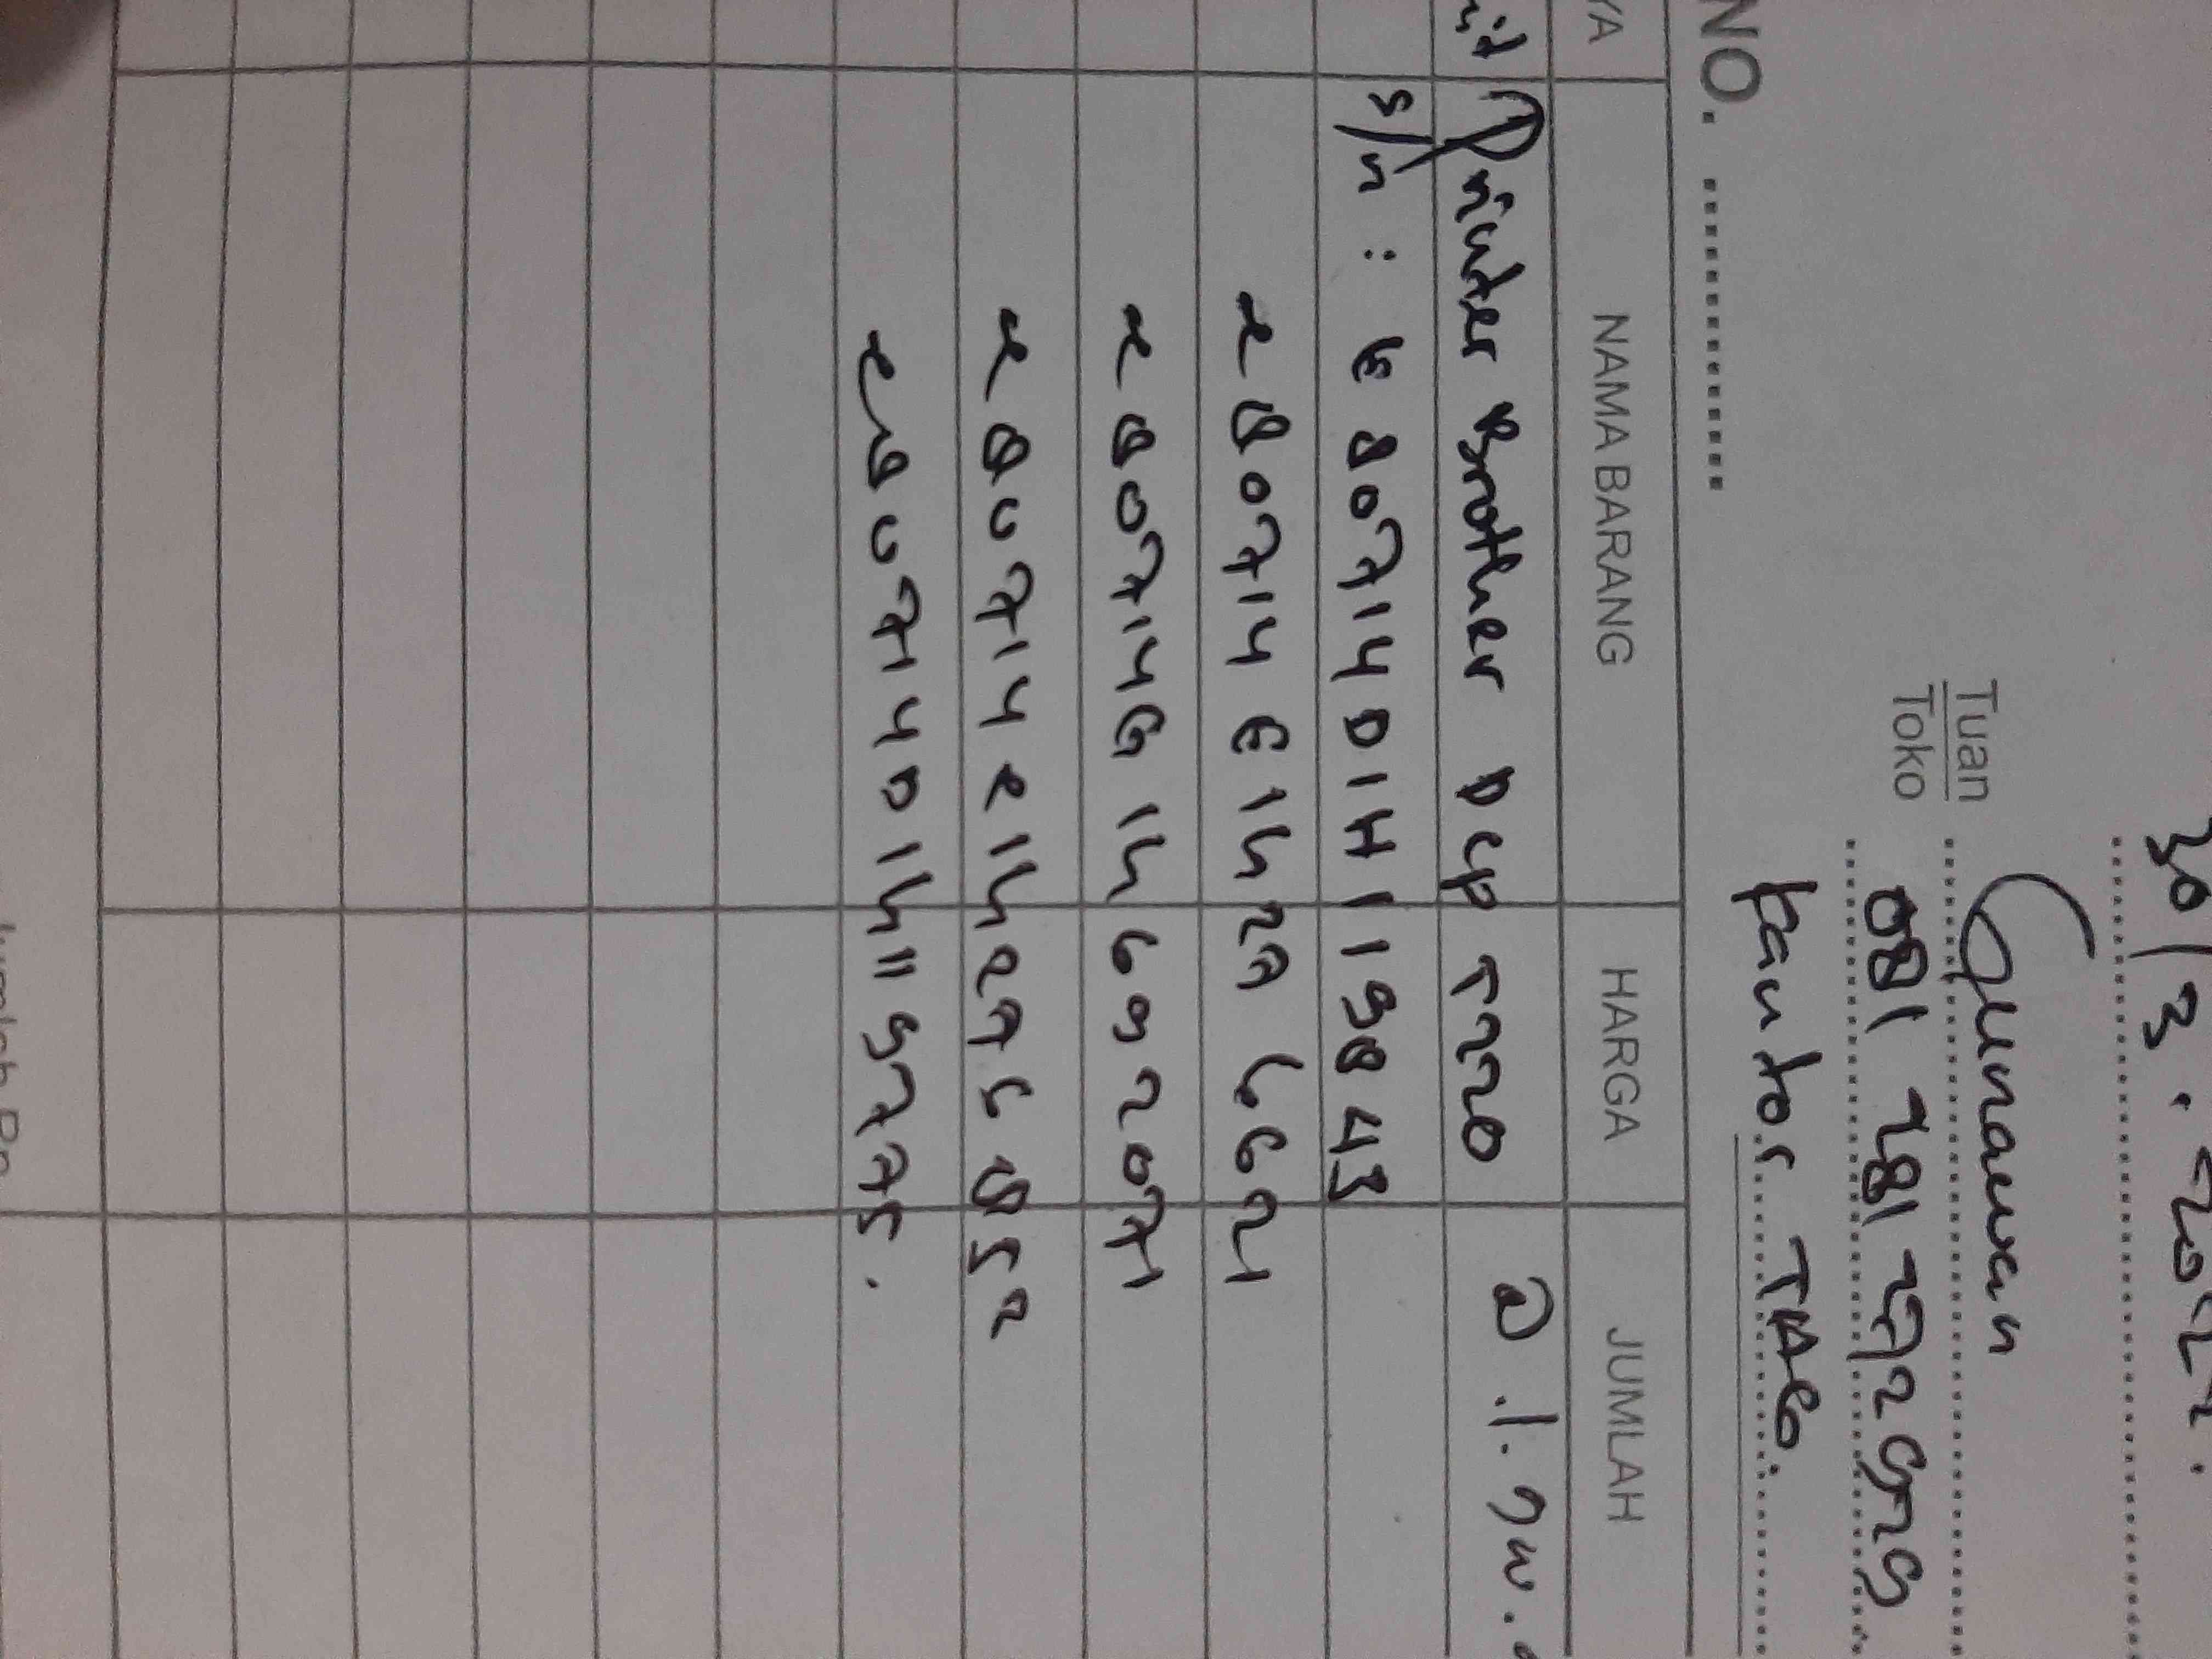 30/3.2022.
Tuan Gunawan
Toko 081 281 272929
kantor TAS.
NO. ....................
YA NAMA BARANG HARGA JUMLAH
Printer Brother Dcp T220 @ 1.
s/n : E80714D1H119843
E80714E1H276621
E80714G1H692071
E80714E1H275852
E80714D1H119775.